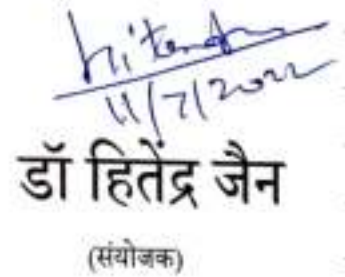 hitendra
11/7/2022
डॉ हितेंद्र जैन
(संयोजक)